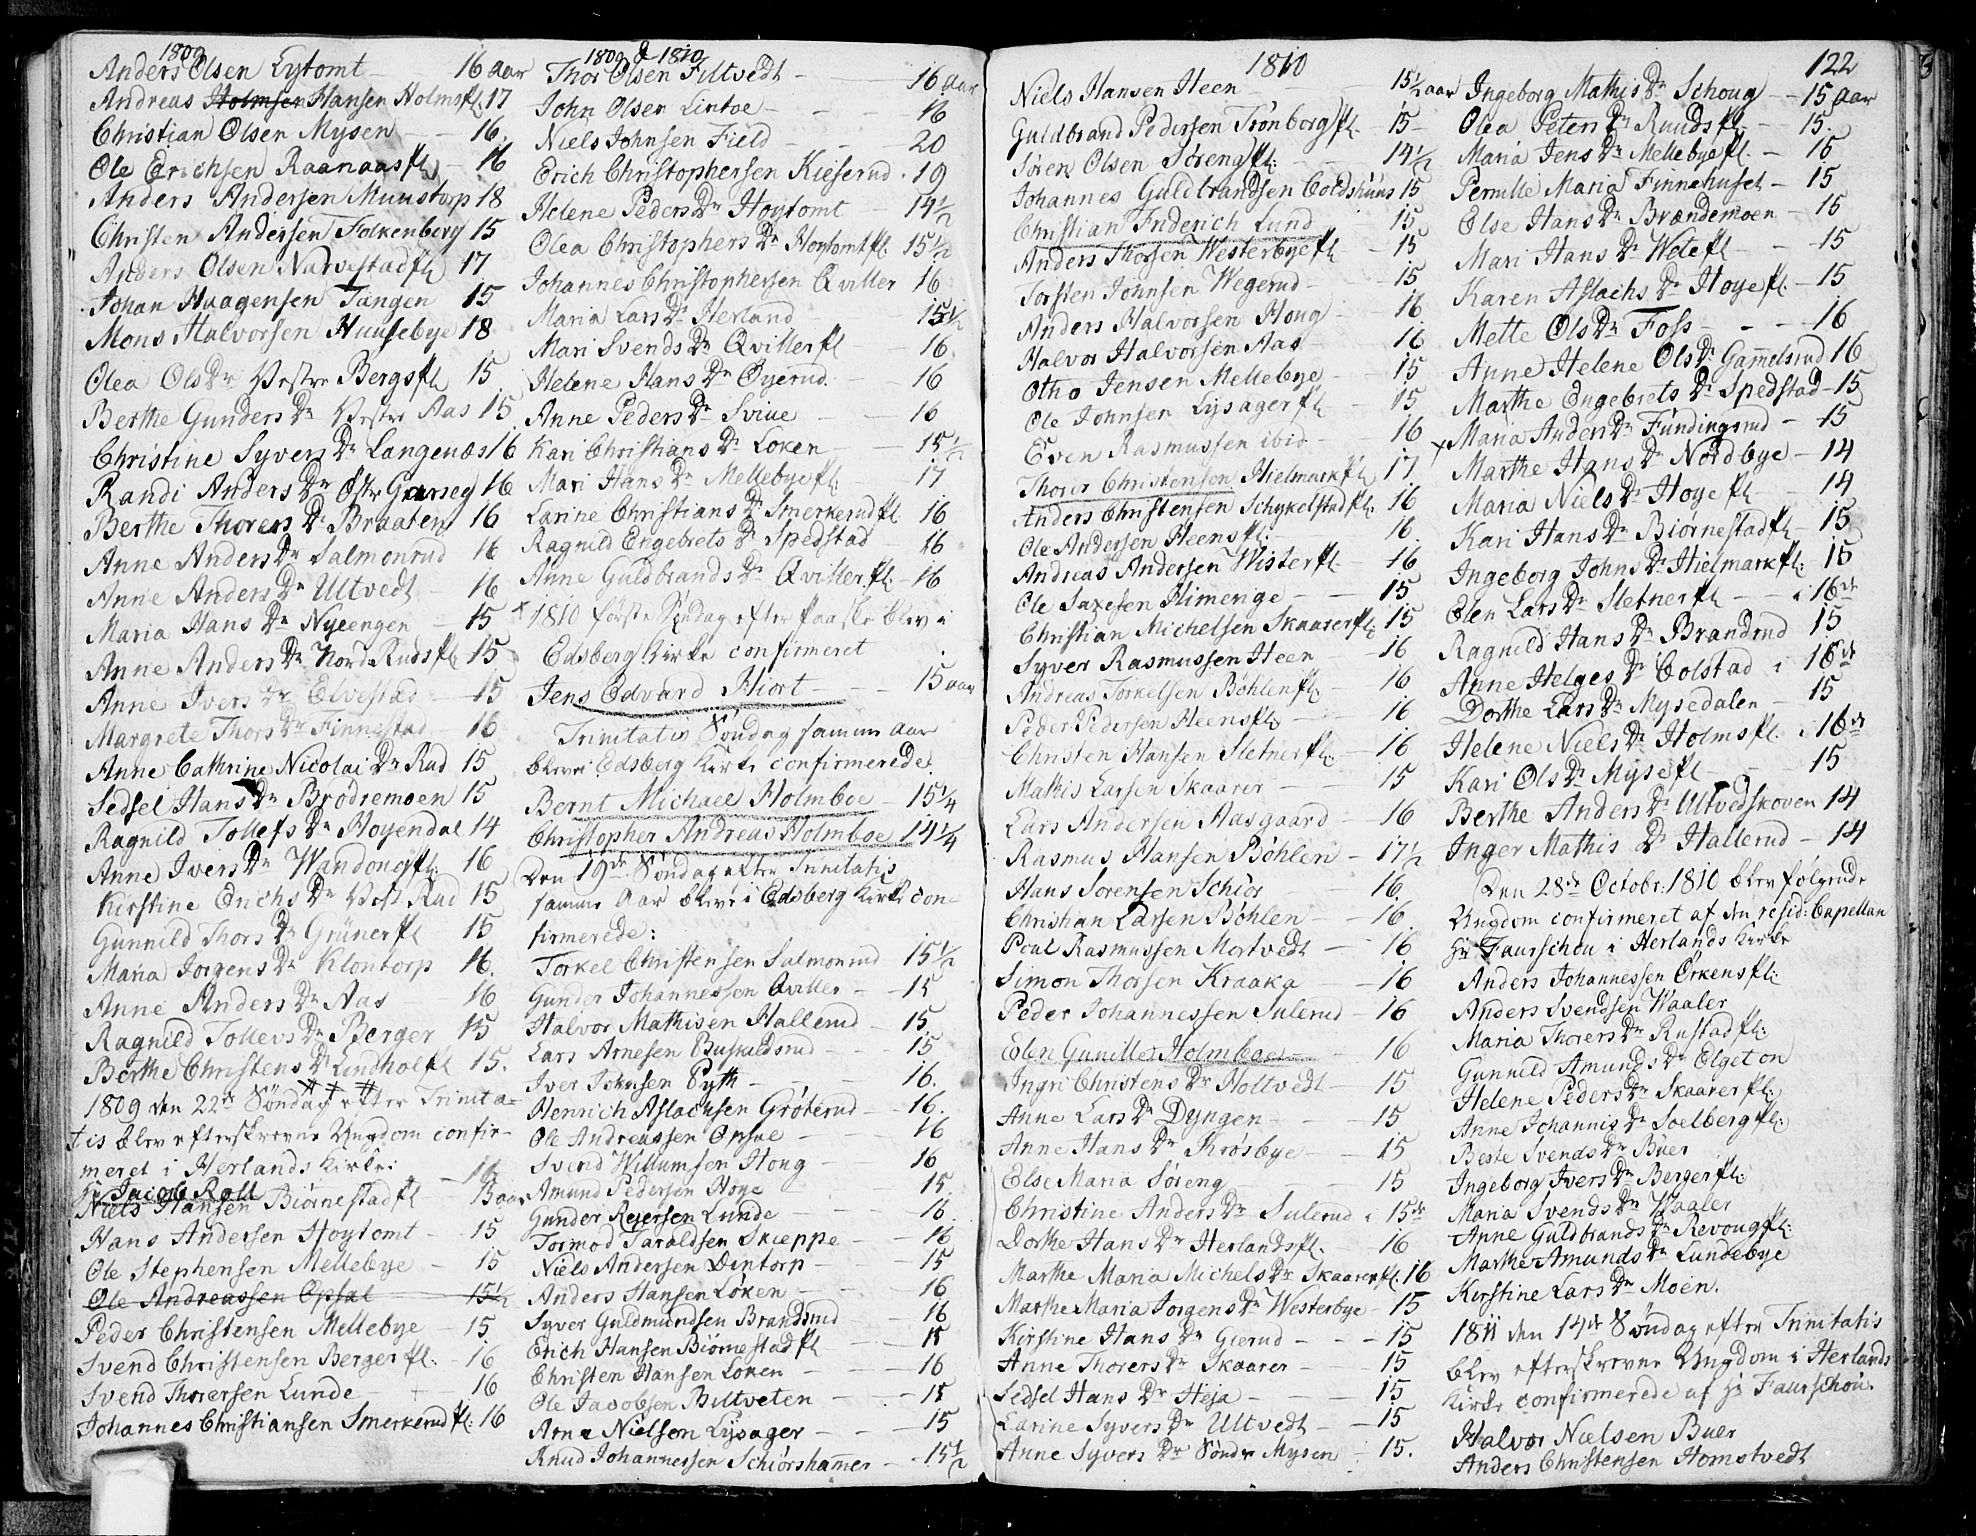 1809
Anders Olsen Lytomt 16 aar
Andreas Holmsen Hansen Holmspl. 17
Christian Olsen Mysen 16.
Ole Erichsen Raanaaspl. 16
Anders Andersen Muustorp 18
Christen Andersen Folkenberg 15
Anders Olsen Narvestadpl. 17
Johan Haagensen Tangen 15
Mons Halvorsen Huusebye 18
Olea Ols Dr Vestre Bergspl 15
Berthe Gunders Dr Vestre Aas 15
Christine Syvers Dr Langenæs 16
Randi Anders Dr Østr Garseg 16
Berthe Thorers Dr Braaten 16
Anne Anders Dr Salmonrud 16
Anne Anders Dr Ultvedt 16
Maria Hans Dr Nyeengen 15
Anne Anders Dr Nord Rudspl. 15
Anne Ivers Dr Elvestad 15
Margrete Thors Dr Finnestad 16
Anne Cathrine Nicolai Dr Rud 15
Sedsel Hans Dr Brødremoen 15
Ragnild Tollefs Dr Høyendal 14
Anne Ivers Dr Wandougpl. 16
Kirstine Erichs Dr Vest. Rud 15
Gunnild Thors Dr Grünerpl 15
Maria Jorgens Dr Klontorp 16.
Anne Anders Dr Aas 16
Ragnild Tollevs Dr Berger 15
Berthe Christens Dr Lindholpl 15.
1809 den 22de Søndag efter Trinita-
tis blev efterskrevne Ungdom confir-
meret i Herlands Kirke:
Hr Jacob Rall 16
Niels Hansen Biørnestadpl 15 aar
Hans Andersen Hoytomt 15
Ole Stephensen Mellebye 15
Ole Andreassen Opsal 15½
Peder Christensen Mellebye 15
Svend Christensen Bergerpl. 16
Svend Thorersen Lunde 16
Johannes Christiansen Smerkerudpl. 16
1809 & 1810
Thor Olsen Filtvedt 16 aar
John Olsen Lintoe 16
Niels Johnsen Field 20
Erich Christophersen Kieserud 19
Helene Peders Dr Hoytomt 14½
Olea Christophers Dr Hoytomtpl. 15½
Johannes Christophersen Qviller 16
Maria Lars Dr Herland 15½
Mari Svends Dr Qvillerpl 16.
Helene Hans Dr Øyerud 16
Anne Peders Dr Sviue 16
Kari Christians Dr Loken 15½
Mari Hans Dr Mellebyepl. 17
Larine Christians Dr Smerkerudpl 16
Ragnild Engebrets Dr Spedstad 16
Anne Guldbrands Dr Qvillerpl. 16
1810 første Søndag efter paaske blev i
Edsberg Kirke confirmeret
Jens Edvard Hiort 15 aar
Trinitatis Søndag samme aar
bleve i Edsberg Kirke confirmerede
Bernt Michael Holmboe 15¼
Christopher Andreas Holmboe 14¼
Den 19de Søndag efter Trinitatis
samme Aar bleve i Edsberg Kirke con-
firmerede:
Torkel Christensen Salmonrud 15½
Gunder Johannessen Qviller 15
Halvor Mathisen Hallerud 15
Lars Arnesen Buskaldsrud 15
Iver Johnsen Pyth 16.
Henrich Aslachsen Grøterud 16.
Ole Andreassen Opsae 16
Svend Willumsen Houg 16
Amund Pedersen Hoye 15
Gunder Reiersen Lunde 16
Tormod Taraldsen Skieppe 16
Niels Andersen Dintorp 15
Anders Hansen Løken 16
Syver Guldmundsen Brandsrud 16
Erich Hansen Biørnestadpl 15
Christen Hansen Loken 16
Ole Jacobsen Bultveten 15
Arne Nielsen Lysager 15
Knud Johannessen Schiørshammer 15½
1810
Niels Hansen Heen 15½ aar
Guldbrand Pedersen Trönborgpl. 15
Søren Olsen Sørengpl. 14½
Johannes Guldbrandsen Coldshuus 15
Christian Friderich Lund 15
Anders Thorsen Westerbyepl 15
Torsten Johnsen Wegerud 15
Anders Halvorsen Houg 16
Halvor Halvorsen Aas 16
Otho Jensen Mellebye 15
Ole Johnsen Lysagerpl 15
Even Rasmussen ibid 16
Thorer Christensen Hielmarkpl 17.
Anders Christensen Schykelstadpl. 16
Ole Andersen Heenspl. 16.
Andreas Andersen Wisterpl. 16
Ole Saxesen Himerige 15
Christian Michelsen Skaarerpl. 15
Syver Rasmussen Heen 16
Andreas Torkelsen Böhlenpl. 16
Peder Pedersen Heenspl. 16
Christen Hansen Sletnerpl. 16
Mathis Larsen Skaarer 15
Lars Andersen Aasgaard 16
Rasmus Hansen Böhlen 17½
Hans Sorensen Schiör 16.
Christian Larsen Böhlen 16
Poul Rasmussen Mortvedt 16
Simon Thorsen Kraaka 16
Peder Johannessen Sulerud 16
Elen Gunille Holmboe 16
Ingri Christens Dr Holtvedt 15
Anne Lars Dr Dyngen 15
Anne Hans Dr Krosbye 15
Else Maria Søreng 15
Christine Anders Dr Sulerud i 15de
Dorthe Hans Dr Herlandspl. 16
Marthe Maria Michels Dr Skaarerpl. 16
Marthe Maria Jorgens Dr Westerbye 15
Kirstine Hans Dr Gierud 15
Anne Thorers Dr Skaarer 15
Sedsel Hans Dr Heja 15
Larine Syvers Dr Ultvedt 15
Anne Syvers Dr Søndr Mysen 15.
122
Ingeborg Mathis Dr Schoug 15 aar
Olea Peters Dr Ruudspl 15.
Maria Jens Dr Mellebyepl. 16
Pernille Maria Finnehuset 15
Else Hans Dr Brændemoen 15
Mari Hans Dr Wetepl 15
Karen Aslachs Dr Hoyepl. 15
Mette Ols Dr Foss 16
Anne Helene Ols Dr Gammelsrud 16
Marthe Engebrets Dr Spedstad 15
Maria Anders Dr Fundingsrud 15
Marthe Hans Dr Nordbye 14
Maria Niels Dr Hoyepl 14
Kari Hans Dr Biørnestadpl 15
Ingeborg Johns Dr Hielmarkpl. 15
Elen Lars Dr Sletnerpl i 16de
Ragnild Hans Dr Brandrud 15
Anne Helges Dr Colstad i 16de
Dorthe Lars Dr Mysedalen 15
Helene Niels Dr Holmspl. i 16de
Kari Ols Dr Mysepl 15
Berthe Anders Dr Ultvedskoven 14
Inger Mathis Dr Hallerud 14
Den 28de Octobr: 1810 blev følgende
Ungdom confirmeret af den resid: Capellan
Hr Faurschou i Herlands Kirke
Anders Johannessen Örkenspl.
Anders Svendsen Waaler
Maria Thorers Dr Rustadpl.
Gunnild Amunds Dr Elgeton
Helene Peders Dr Skaarerpl.
Anne Johannis Dr Soelbergpl.
Beste Svends Dr Buer
Ingeborg Ivers Dr Bergerpl.
Maria Svends Dr Waaler
Anne Guldbrands Dr Revougpl.
Marthe Amunds Dr Lundebye
Kirstine Lars Dr Moen.
1811 den 14de Søndag efter Trinitatis
blev efterskrevne Ungdom i Herlands
Kirke confirmerede af Hr Faurschou.
Halvor Nielsen Buer
Anders Christensen Homstvedt